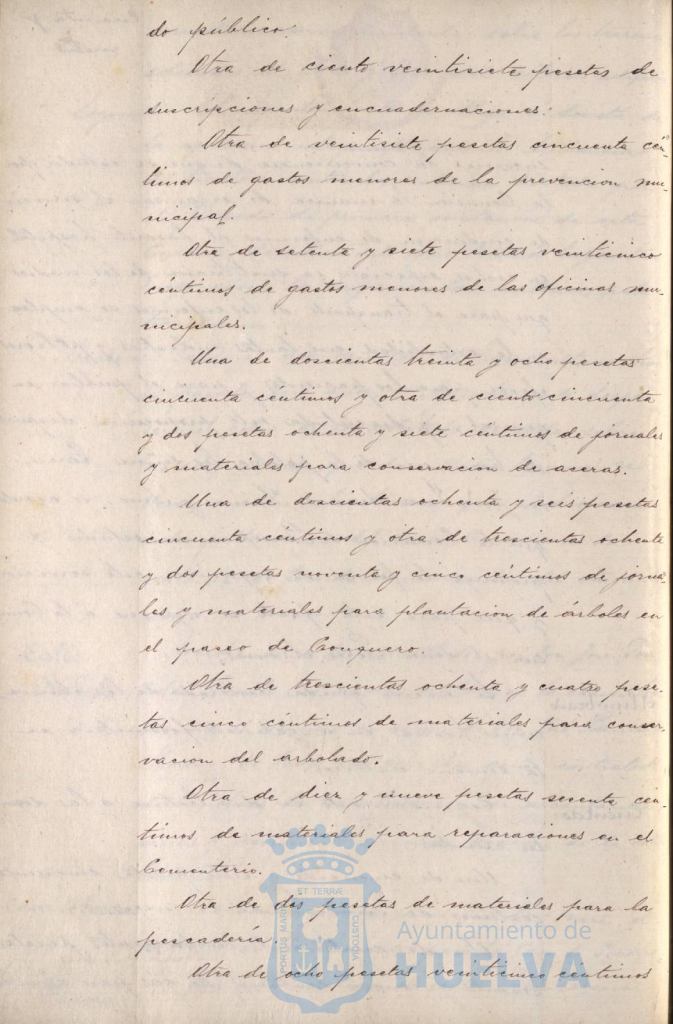 do público.
Otra de ciento veintisiete pesetas de
suscripciones y encuadernaciones.
Otra de veintisiete pesetas cincuenta cén-
timos de gastos menores de la prevencion mu-
nicipal.
Otra de setenta y siete pesetas veinticinco
céntimos de gastos menores de las oficinas mu-
nicipales.
Una de doscientas treinta y ocho pesetas
cincuenta céntimos y otra de ciento cincuenta
y dos pesetas ochenta y siete céntimos de jornales
y materiales para conservacion de aceras.
Una de doscientas ochenta y seis pesetas
cincuenta céntimos y otra de trescientas ochenta
y dos pesetas noventa y cinco céntimos de jorna-
les y materiales para plantacion de árboles en
el paseo de Conquero.
Otra de trescientas ochenta y cuatro pese-
tas cinco céntimos de materiales para conser-
vacion del arbolado.
Otra de diez y nueve pesetas sesenta cén-
timos de materiales para reparaciones en el
Cementerio.
Otra de dos pesetas de materiales para la
pescadería.
Otra de ocho pesetas veinticinco céntimos
PORTUS MARIS ET TERRÆ CUSTODIA
Ayuntamiento de
HUELVA